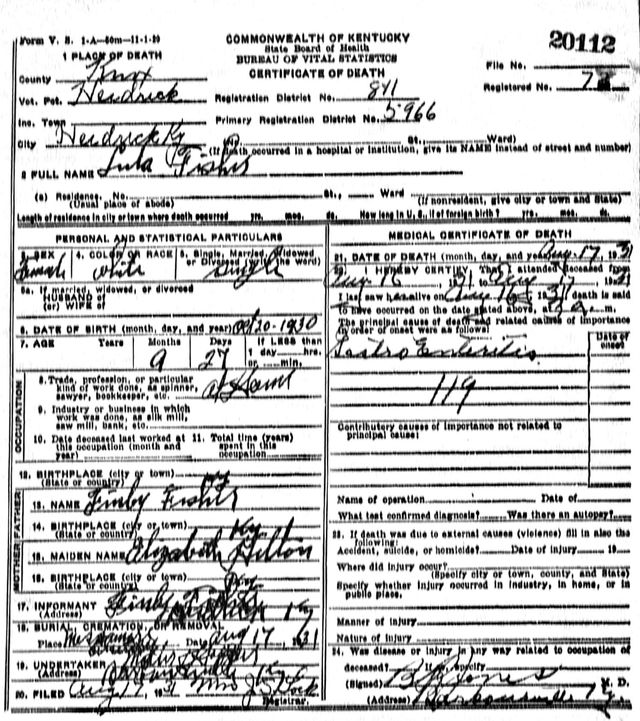 Form V. S. 1-A-50m-11-1-29
COMMONWEALTH OF KENTUCKY
State Board of Health
BUREAU OF VITAL STATISTICS
CERTIFICATE OF DEATH
20112
1 PLACE OF DEATH
File No.
County Knox
Registered No. 7
Vot. Pct. Heidrick
Registration District No. 841
Inc. Town
Primary Registration District No. 5966
City Heidrick Ky
St., Ward)
(If death occurred in a hospital or institution, give its NAME instead of street and number)
2 FULL NAME Lula Fisher
(a) Residence. No. St., Ward
(Usual place of abode) (If nonresident, give city or town and State)
Length of residence in city or town where death occurred yrs. mos. ds. How long in U. S., if of foreign birth? yrs. mos. ds.
PERSONAL AND STATISTICAL PARTICULARS
3. SEX Female
4. COLOR OR RACE white
5. Single, Married, Widowed or Divorced (write the word) single
5a. If married, widowed, or divorced
HUSBAND of
(or) WIFE of
6. DATE OF BIRTH (month, day, and year) Oct 20-1930
7. AGE Years Months Days If LESS than
9 27 1 day, hrs.
or min.
OCCUPATION
8. Trade, profession, or particular
kind of work done, as spinner,
sawyer, bookkeeper, etc.
9. Industry or business in which
work was done, as silk mill,
saw mill, bank, etc.
10. Date deceased last worked at this occupation (month and year)
11. Total time (years) spent in this occupation
12. BIRTHPLACE (city or town)
(State or country) Ky
FATHER
13. NAME Finby Fisher
14. BIRTHPLACE (city or town)
(State or country) Ky
MOTHER
15. MAIDEN NAME Elizabeth Hilton
16. BIRTHPLACE (city or town)
(State or country) Ky
17. INFORMANT Finby Fisher
(Address) Ky
18. BURIAL, CREMATION, OR REMOVAL
Place Date Aug 17 1931
19. UNDERTAKER
(Address) Barbourville Ky
20. FILED Aug 17, 1931 Mrs J.S. Lock
Registrar.
MEDICAL CERTIFICATE OF DEATH
21. DATE OF DEATH (month, day, and year) Aug 17, 1931
22. I HEREBY CERTIFY, That I attended deceased from
Aug 16, 1931 to Aug 17, 1931
I last saw her alive on Aug 16, 1931 death is said
to have occurred on the date stated above, at 9 a. m.
The principal cause of death and related causes of importance
in order of onset were as follows:
Date of onset
Gastro Enteritis
119
Contributory causes of importance not related to
principal cause:
Name of operation Date of
What test confirmed diagnosis? Was there an autopsy?
23. If death was due to external causes (violence) fill in also the
following:
Accident, suicide, or homicide? Date of injury 19
Where did injury occur?
(Specify city or town, county, and State)
Specify whether injury occurred in industry, in home, or in
public place.
Manner of injury
Nature of injury
24. Was disease or injury in any way related to occupation of
deceased? If so, specify
(Signed) B B Jones M. D.
(Address) Barbourville Ky.